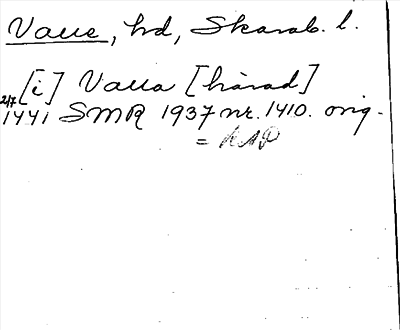 Valle, hd, Skarab. l.
[i] Valla [härad]
2/7 1441 SMR 1937 nr. 1410. orig.
= RAP